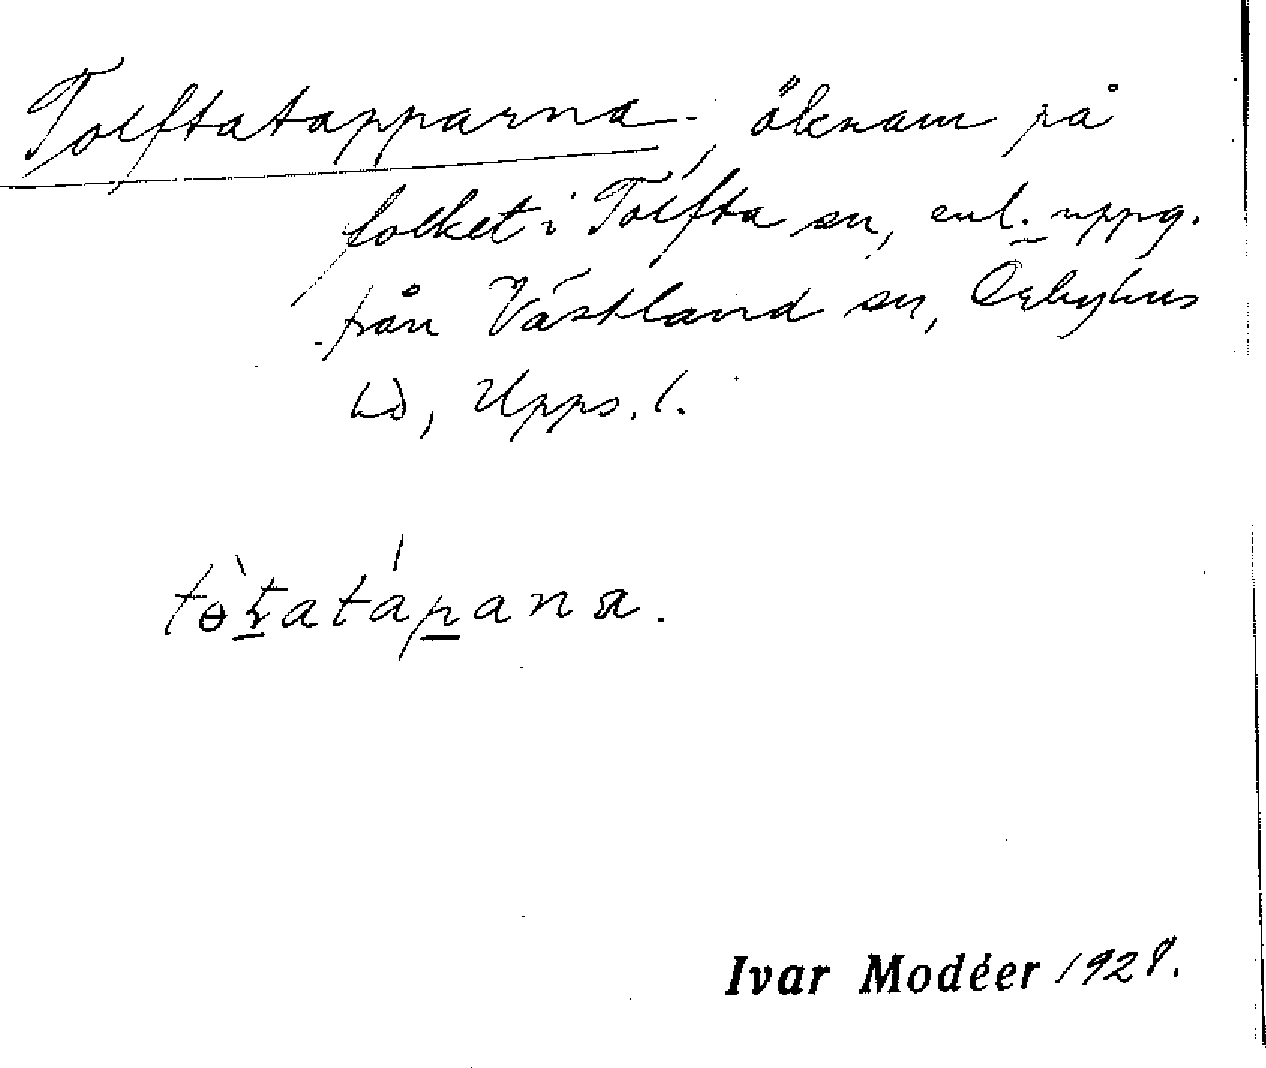 Tolftatapparna, öknam på
folket i Tolfta sn, enl. uppg.
från Västland sn, Örbyhus
hd, Upps. l.
Ivar Modéer 1928.